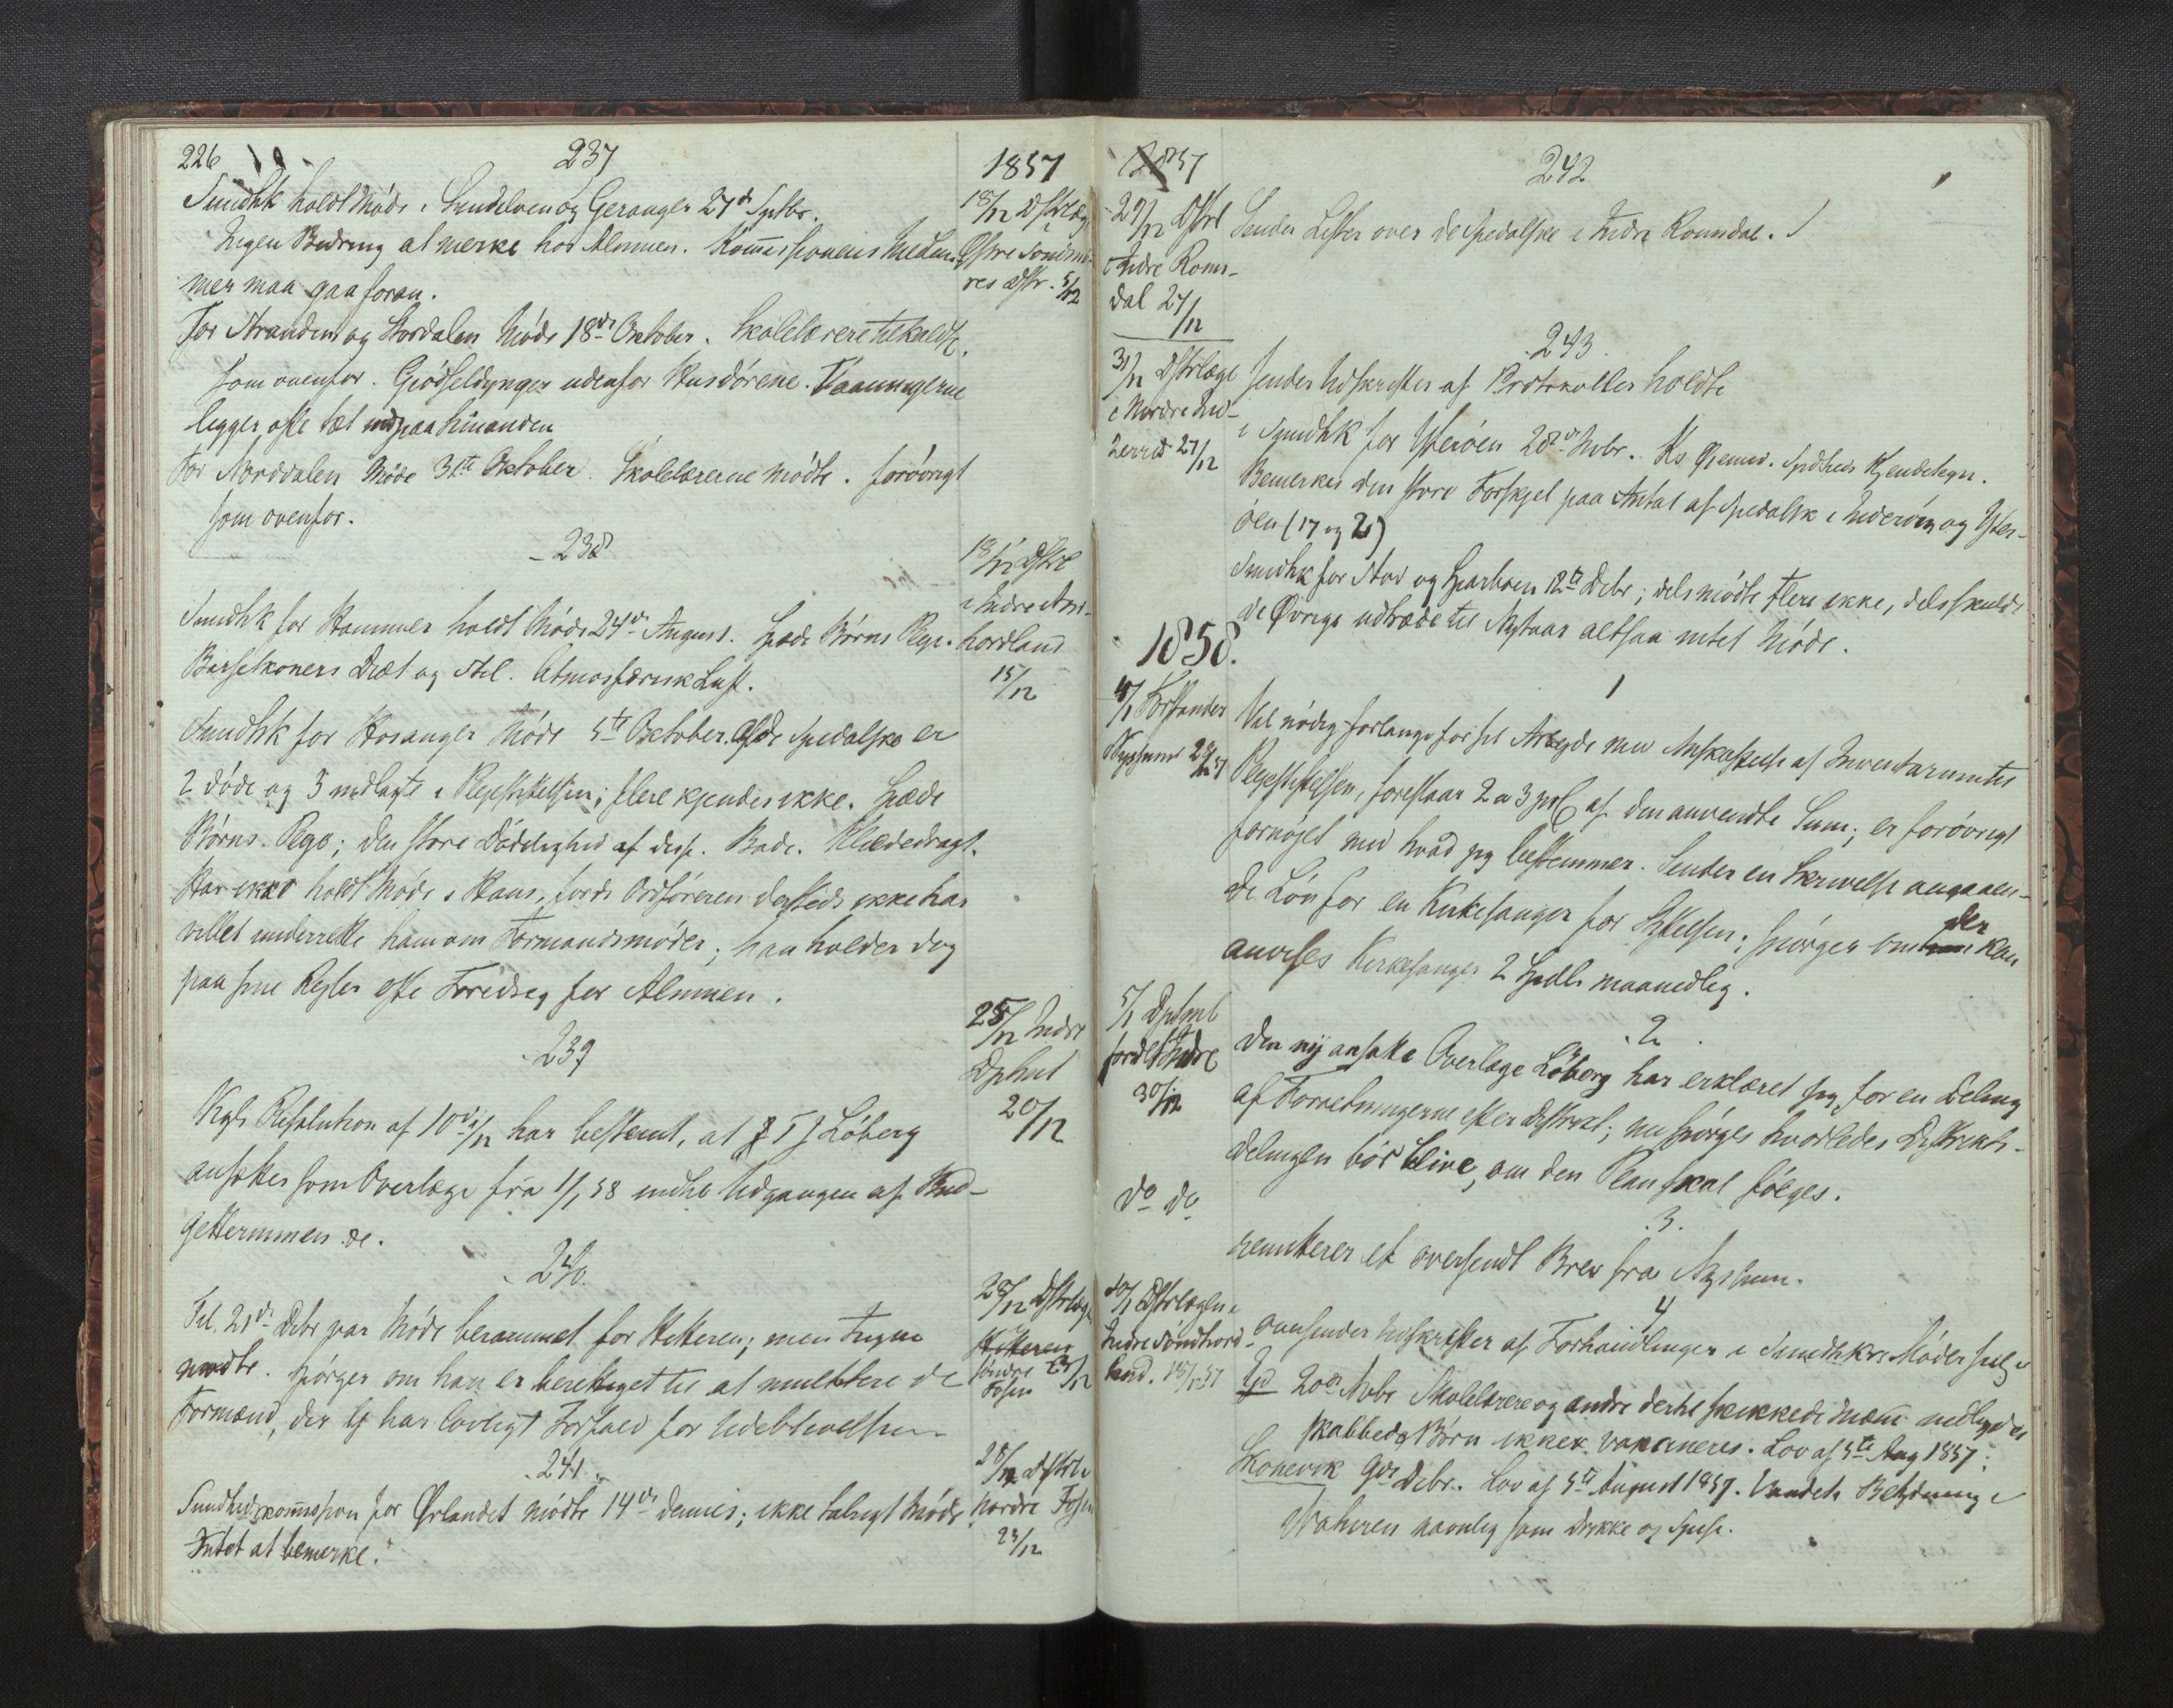 226
237
1857
Sundhk holdt Møde i Sundelven og Geranger 27de Septbr.
18/12 Dstrlæg
Ingen Bedring at merke hos Almuen. Kommissionens Medlem-
Østre Søndmø-
mer maa gaa foran.
res dstr. 5/12
For Stranden og Stordalen Møde 18de Oktober. Skolelærere tilkaldte.
som ovenfor. Gjødseldynger udenfor Husdørene. Vaaningerne
ligger ofte tæt indpaa hinanden
For Norddalen Møde 31te Oktober. Skolelærerne mødte. forøvrigt
som ovenfor.
238
18/12 Dstrl
i Indre Nord-
hordland
15/12
Sundhk for Hammer holdt Møde 24de August. Spæde Børns Pleje.
Barselkoners Diæt og Stel. Atmosfærisk Luft.
Sundhk for Hosanger Møde 5te Oktober. Af de spedalske er
2 døde og 3 indlagte i Plejestiftelsen; flere kjendes ikke. Spæde
Børns Pleje; den store Dødelighed af disse. Bade. Klædedragt.
Har ikke holdt Møde i Haus, fordi Ordføreren dersteds ikke har
villet underrette ham om Formandsmøder; han holder dog
paa sine Rejser ofte Foredrag for Almuen.
239
25/12 Indre
Dptmt
20/12
Kgl. Resolution af 10de/12 har bestemt, at J T J Løberg
ansættes som Overlæge fra 1/1 58 indtil Udgangen af Bud-
getterminen &c.
240.
28/12 Dstrlæge
i
Hitteren
Søndre
Fosen
Til 21de Debr var Møde berammet for Hitteren; men Ingen
mødte. Spørger om han er berettiget til at mulktere de
Formænd, der Ej har lovligt Forfald for Udeblivelsen
241
28/12 Dstrl i
Nordre Fosen
23/12
Sundhedskommission for Ørlandet mødte 14de dennes; ikke talrigt Møde
Intet at bemerke.
1857
242
29/12 Dstrl
i Indre Roms-
dal 27/12
Sender Lister over de spedalske i Indre Romsdal.
243.
31/12 Dstrlæge
i Nordre Ind-
herred 27/12
Sender Udskrifter af Protokoller holdte
i Sundhk for Ytterøen 28de Novbr. Ks Sydhed Kjendetegn.
Bemerker den store Forskjel paa Antal af spedalske i Inderøen og Ytter-
øen (17 og 2)
Sundhk for Stod og Sparboen 12te Debr; dels mødte flere ikke, dels skulde
de Øvrige udtræde til Nytaar altsaa intet Møde.
1858.
1
4/1 Forstander
Vil nødig forlange for sit Arbejde med Anskaffelse af Inventarium til
Plejestiftelsen, foreslaar 2 a 3 prC af den anvendte Sum; er forøvrigt
fornøjet med hvad jeg bestemmer. Sender en Skrivelse angaaen-
de Løn for en Kirkesanger for Stiftelsen; spørger om der kan
anvises Kirkesanger 2 Spdlr maanedlig.
2.
5/1 Dptmt
for det Indre
30/12
Den ny ansatte Overlæge Løberg har erklæret sig for en Deling
af Forretningerne efter Distrikt; nu spørges hvorledes Distrikts-
delingen bør blive, om den Plan skal følges.
do do
3.
remitterer et oversendt Brev fra Nyhiem.
4
10/1 Dstrlægen i
Indre Søndhord-
land.
oversender Udskrifter af Forhandlinger i Sundhks Møder
20de Novbr Skolelærere og andre dertil skikkede Mænd
skabbede Børn ikke vaccineres. Lov af 5te Aug 1857.
Skonevik 9de Debr. Lov af 5te August 1857. Vandets Betydning i
Naturen navnlig som Drikke og Spise.